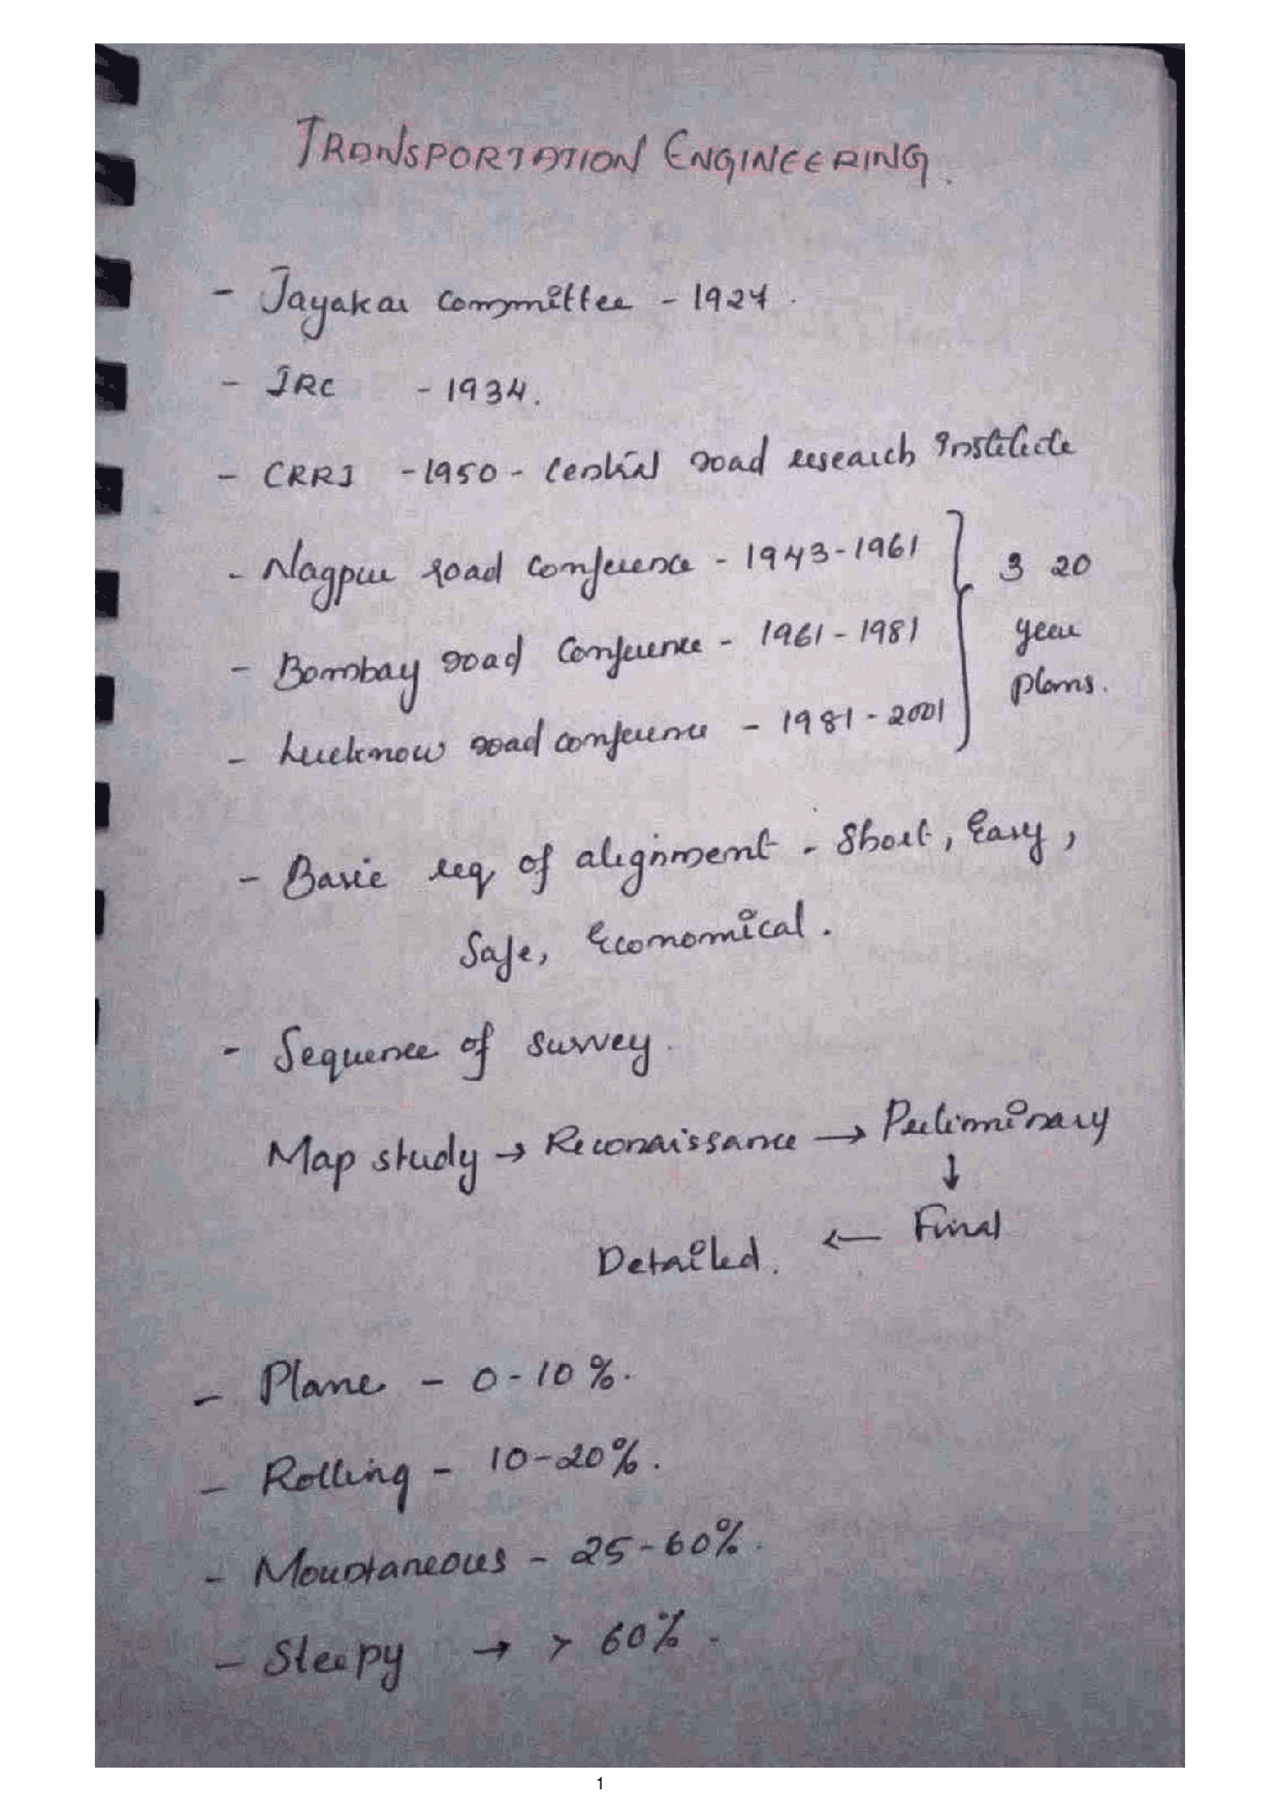 TRANSPORTATION ENGINEERING.
- Jayakar committee - 1927.
- IRC - 1934.
- CRRI - 1950 - Central road research institute
- Nagpur road conference - 1943-1961
3 20
- Bombay road Conference - 1961 - 1981
year
plans.
- Lucknow road conference - 1981 - 2001
- Basic req of alignment - Short, Easy,
Safe, Economical.
- Sequence of survey.
Map study → Reconaissance → Preliminary
↓
Detailed. ← Final
- Plane - 0-10%.
- Rolling - 10-20%.
- Mountaneous - 25-60%.
- Steepy → > 60%.
1